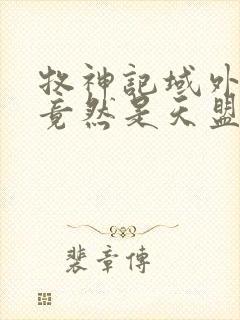 牧神記域外
竟然是天盟
裴章傳